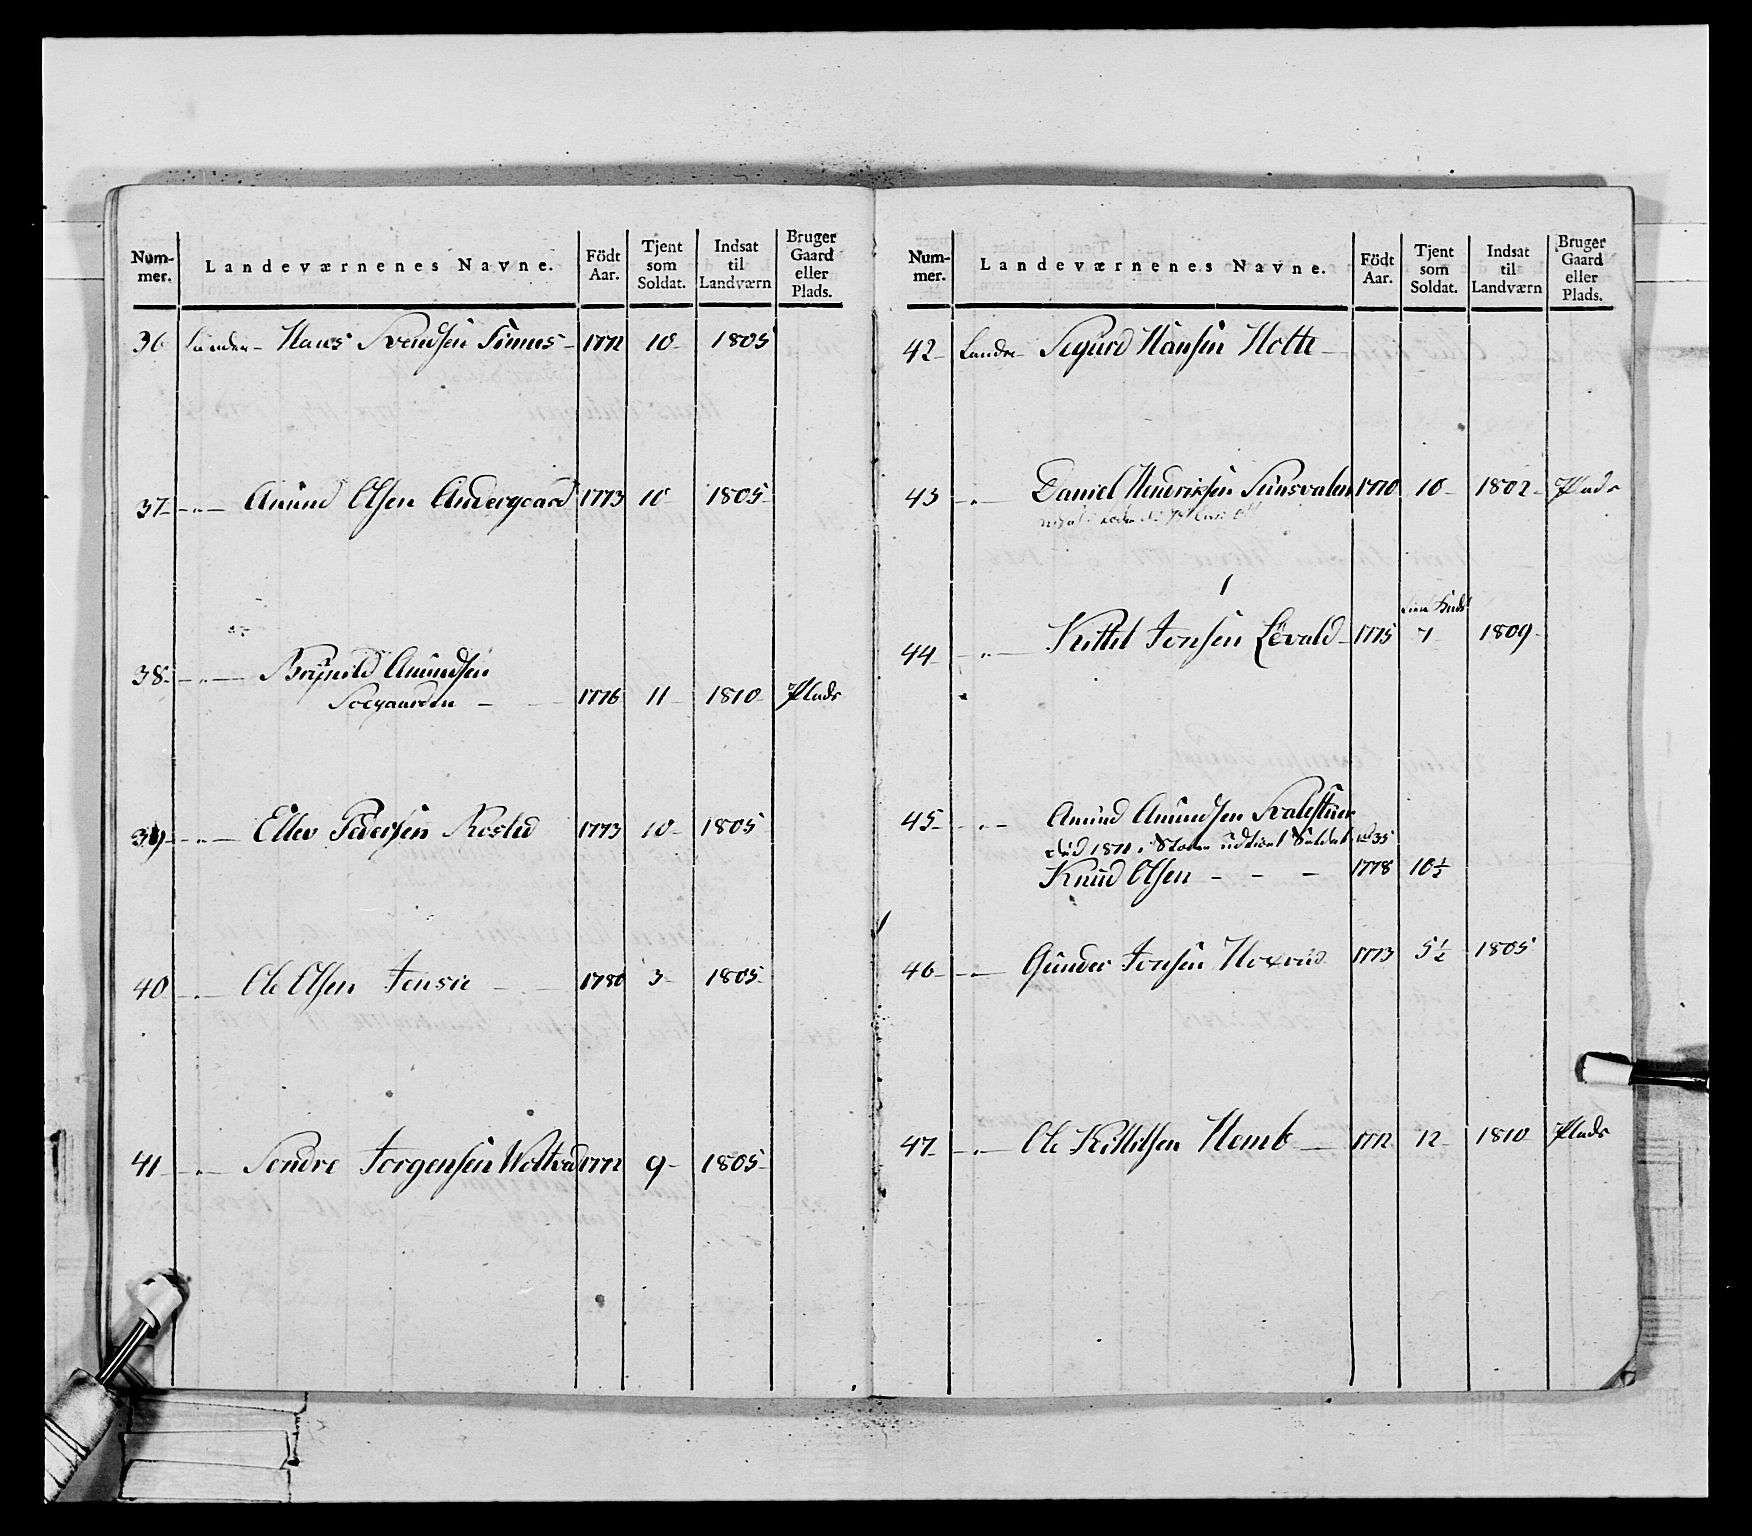 Num-
mer.
Landeværnenes Navne.
Födt
Aar.
Tjent
som
Soldat.
Indsat
til
Landværn
Bruger
Gaard
eller
Plads.
36 Lander- Hans Svendsen Simus - 1772 10- 1805
37- - " - Amund Olsen Andergaard 1773 10- 1805-
38- - " - Brÿnild Amundsen
Soegaarden - 1776 11- 1810- Plads
39- - " - Ellev Pedersen Rosted 1773 10- 1805
40- - " - Ole Olsen Jensie - 1780 3- 1805-
41- - " - Sondre Jorgensen Woltved 1772 9- 1805-
Num-
mer.
Landeværnenes Navne.
Födt
Aar.
Tjent
som
Soldat.
Indsat
til
Landværn
Bruger
Gaard
eller
Plads.
42- Lande- Sigurd Hansen Holte -
43- - " - Daniel Hendriksen 1770 10- 1802- Plads
44- - " - Kittel Jonsen Lövald- 1775 7- 1809-
45- - " - Amund Amundsen
död 1811 udtient Soldat No 35
Knud Olsen - - - 1778 10½
46- - " - Gunder Jonsen Hoxrud 1773 5½ 1805
47- - " - Ole Kittilsen Hemb - 1772 12- 1810- Plads